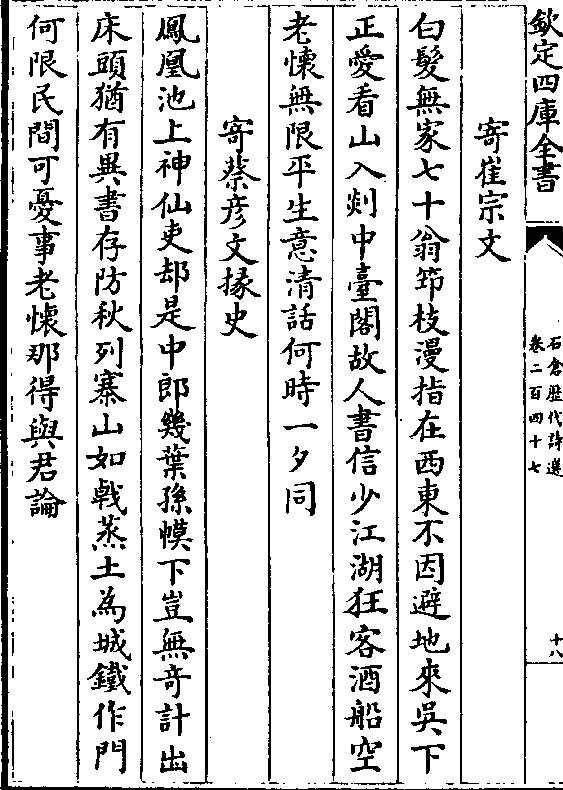 欽定四庫全書
石倉歴代詩選
卷二百四十七
十八
寄崔宗文
白髮無家七十翁笻枝漫指在西東不因避地來吳下
正愛看山入剡中臺閣故人書信少江湖狂客酒船空
老懷無限平生意清話何時一夕同
寄蔡彦文掾史
鳳凰池上神仙吏却是中郎幾葉孫幙下豈無竒計出
床頭猶有異書存防秋列寨山如㦸蒸土為城鐵作門
何限民間可憂事老懷那得與君論